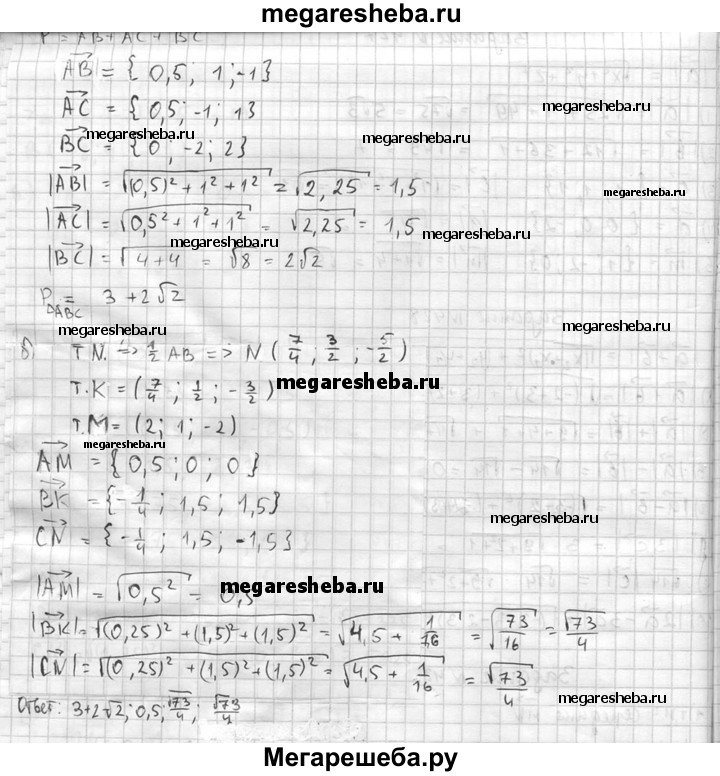 megaresheba.ru
P = AB + AC + BC
AB = { 0,5 ; 1 ; -1 }
megaresheba.ru
AC = { 0,5 ; -1 ; 1 }
megaresheba.ru megaresheba.ru
BC = { 0 ; -2 ; 2 }
|AB| = √((0,5)² + 1² + 1²) = √2,25 = 1,5
megaresheba.ru
|AC| = √(0,5² + 1² + 1²) = √2,25 = 1,5
megaresheba.ru megaresheba.ru
|BC| = √(4+4) = √8 = 2√2
P△ABC = 3 + 2√2
megaresheba.ru
б) т N. => 1/2 AB => N ( 7/4 ; 3/2 ; -5/2 )
т.K = ( 7/4 ; 1/2 ; -3/2 )
megaresheba.ru
т.M = (2; 1; -2)
megaresheba.ru
AM = { 0,5 ; 0 ; 0 }
BK = { -1/4 ; 1,5 ; 1,5 }
megaresheba.ru
CN = { -1/4 ; 1,5 ; -1,5 }
|AM| = √0,5² = 0,5
megaresheba.ru
|BK| = √((0,25)² + (1,5)² + (1,5)²) = √(4,5 + 1/16) = √(73/16) = √73/4
|CN| = √((0,25)² + (1,5)² + (1,5)²) = √(4,5 + 1/16) = √73/4
megaresheba.ru
Ответ: 3+2√2 ; 0,5 ; √73/4 ; √73/4
Мегарешеба.ру